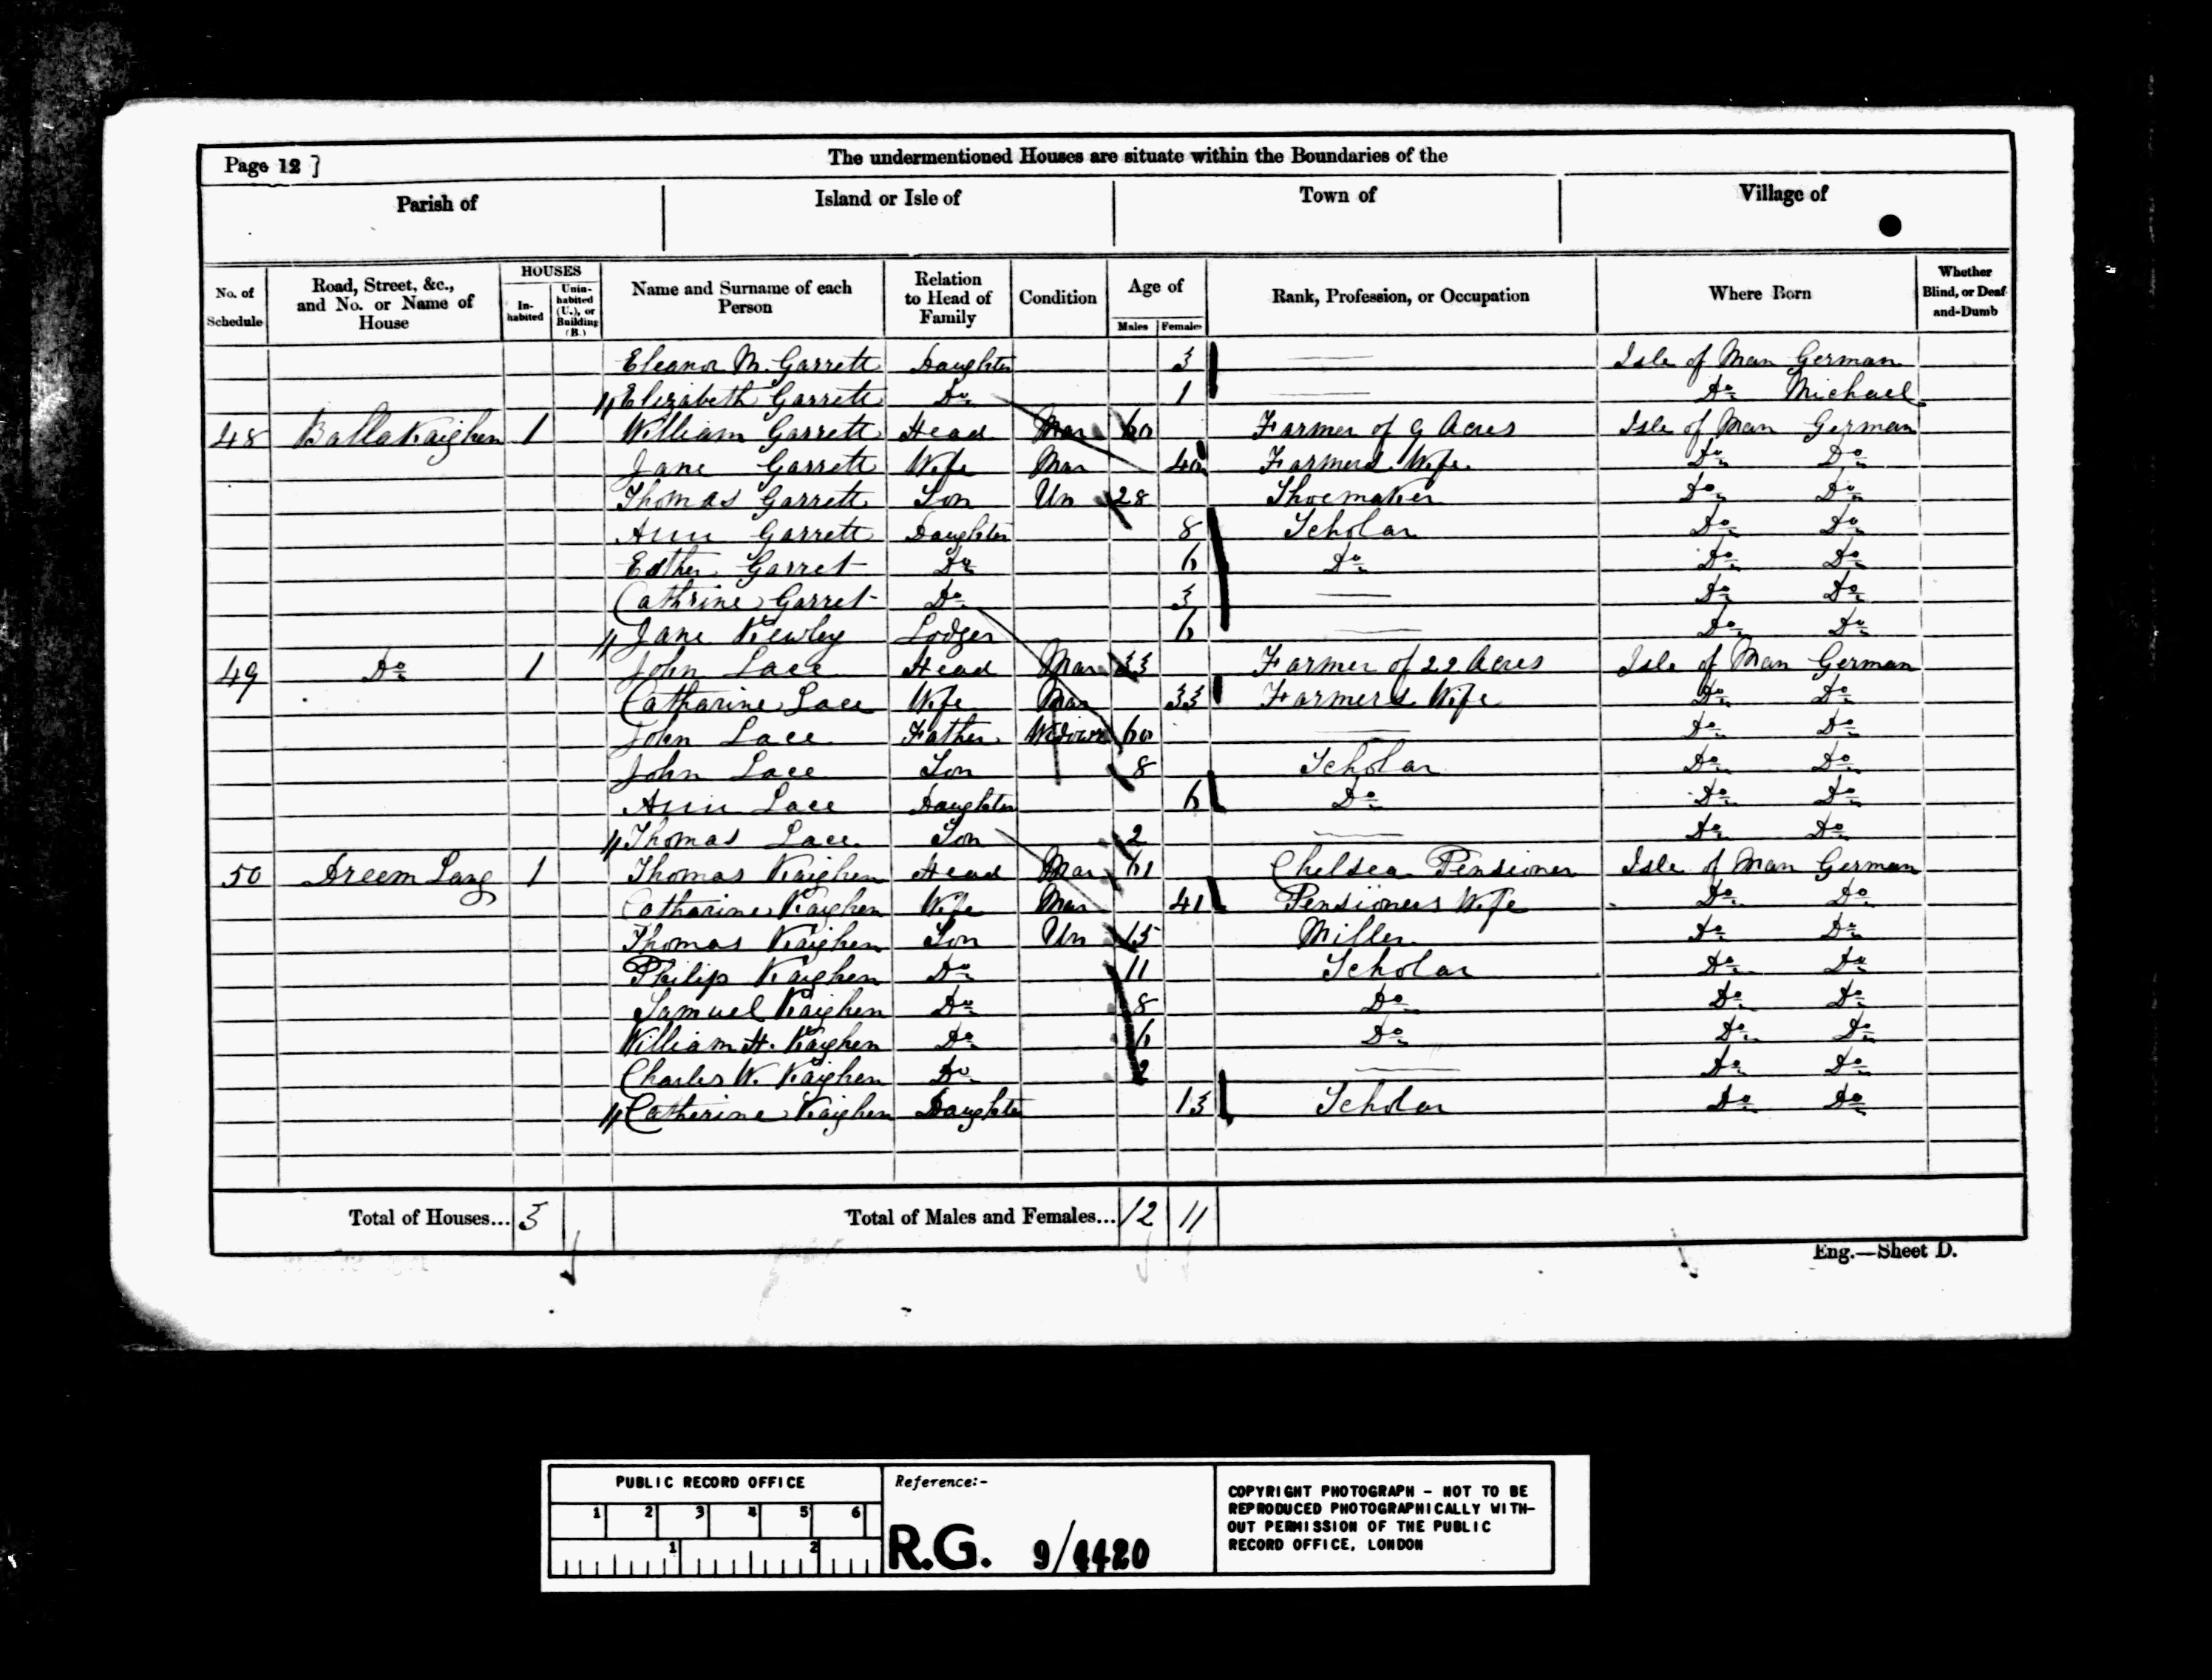 Page 12 ]
The undermentioned Houses are situate within the Boundaries of the
Parish of Island or Isle of Town of Village of
No. of Schedule Road, Street, &c., and No. or Name of House HOUSES In-habited Unin-habited (U.), or Building (B.) Name and Surname of each Person Relation to Head of Family Condition Age of Males Females Rank, Profession, or Occupation Where Born Whether Blind, or Deaf-and-Dumb
Eleanor M. Garrett Daughter 3 Isle of Man German
Elizabeth Garrett Do 1 Do Michael
48 BallaKaighen 1 William Garrett Head Mar 60 Farmer of 9 Acres Isle of Man German
Jane Garrett Wife Mar 40 Farmers Wife Do Do
Thomas Garrett Son Un 28 Shoemaker Do Do
Ann Garrett Daughter 8 Scholar Do Do
Esther Garret Do 6 Do Do Do
Cathrine Garret Do 3 Do Do
Jane Kewley Lodger 6 Do Do
49 Do 1 John Lace Head Mar 33 Farmer of 22 Acres Isle of Man German
Catharine Lace Wife Mar 33 Farmers Wife Do Do
John Lace Father Widower 60 Do Do
John Lace Son 8 Scholar Do Do
Ann Lace Daughter 6 Do Do Do
Thomas Lace Son 2 Do Do
50 Dreem Lang 1 Thomas Kaighen Head Mar 61 Chelsea Pensioner Isle of Man German
Catharine Kaighen Wife Mar 41 Pensioners Wife Do Do
Thomas Kaighen Son Un 15 Miller Do Do
Philip Kaighen Do 11 Scholar Do Do
Samuel Kaighen Do 8 Do Do Do
William H. Kaighen Do 6 Do Do Do
Charles W. Kaighen Do 2 Do Do
Catherine Kaighen Daughter 13 Scholar Do Do
Total of Houses... 3 Total of Males and Females... 12 11
Eng.—Sheet D.
PUBLIC RECORD OFFICE
1 2 3 4 5 6
1 2
Reference:-
R.G. 9/4420
COPYRIGHT PHOTOGRAPH - NOT TO BE
REPRODUCED PHOTOGRAPHICALLY WITH-
OUT PERMISSION OF THE PUBLIC
RECORD OFFICE, LONDON